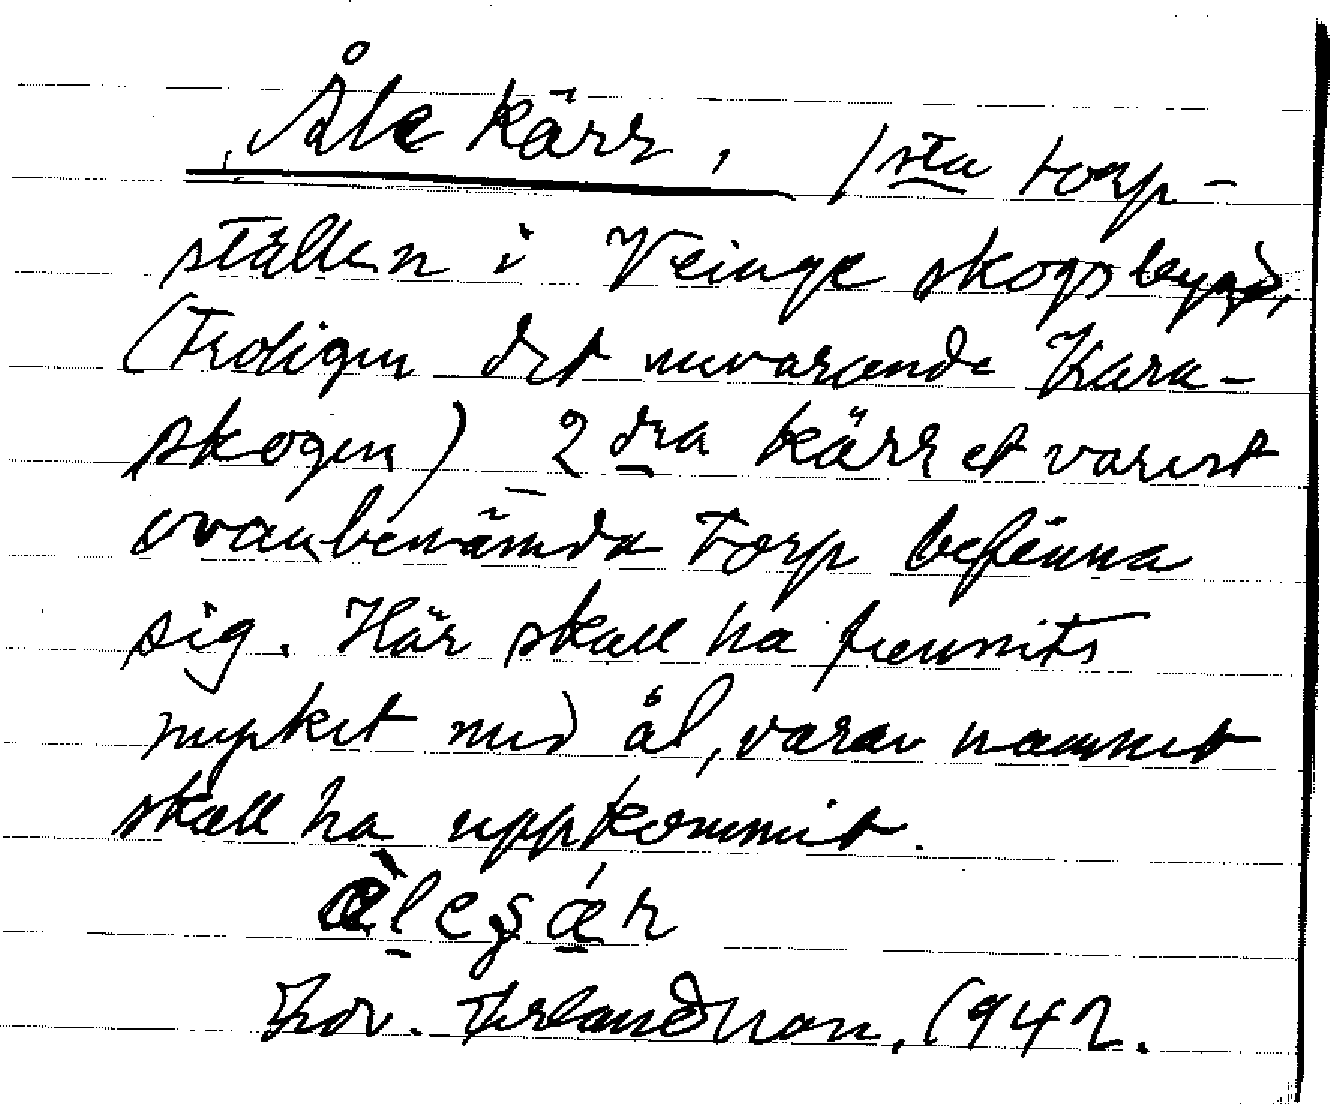 Åle kärr, 1sta torp-
ställen i Veinge skogsbygd,
(Troligen det nuvarande Kara-
skogen) 2dra kärret varest
ovanbenämda torp befinna
sig. Här skall ha funnits
mycket med ål, varav namnet
skall ha uppkommit.
Edv. Erlandsson, 1942.